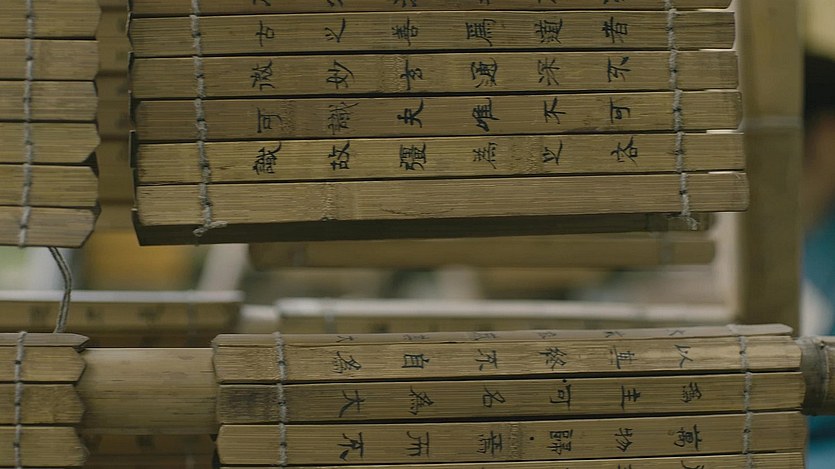 古之善爲道者
微妙玄通深不
可識夫唯不可
識故彊為之容
萬物歸焉而不
為主可名為大
以其終不自為